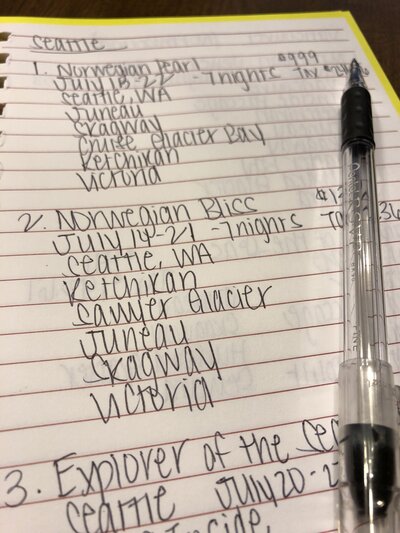 Seattle
1. Norwegian Pearl $999
July 15-22 - 7nights TAX
Seattle, WA
Juneau
Skagway
Cruise Glacier Bay
Ketchikan
Victoria
2. Norwegian Bliss
July 14-21 - 7nights
Seattle, WA
Ketchikan
Sawyer Glacier
Juneau
Skagway
Victoria
3. Explorer of the Sea
Seattle July 20-2
Inside,